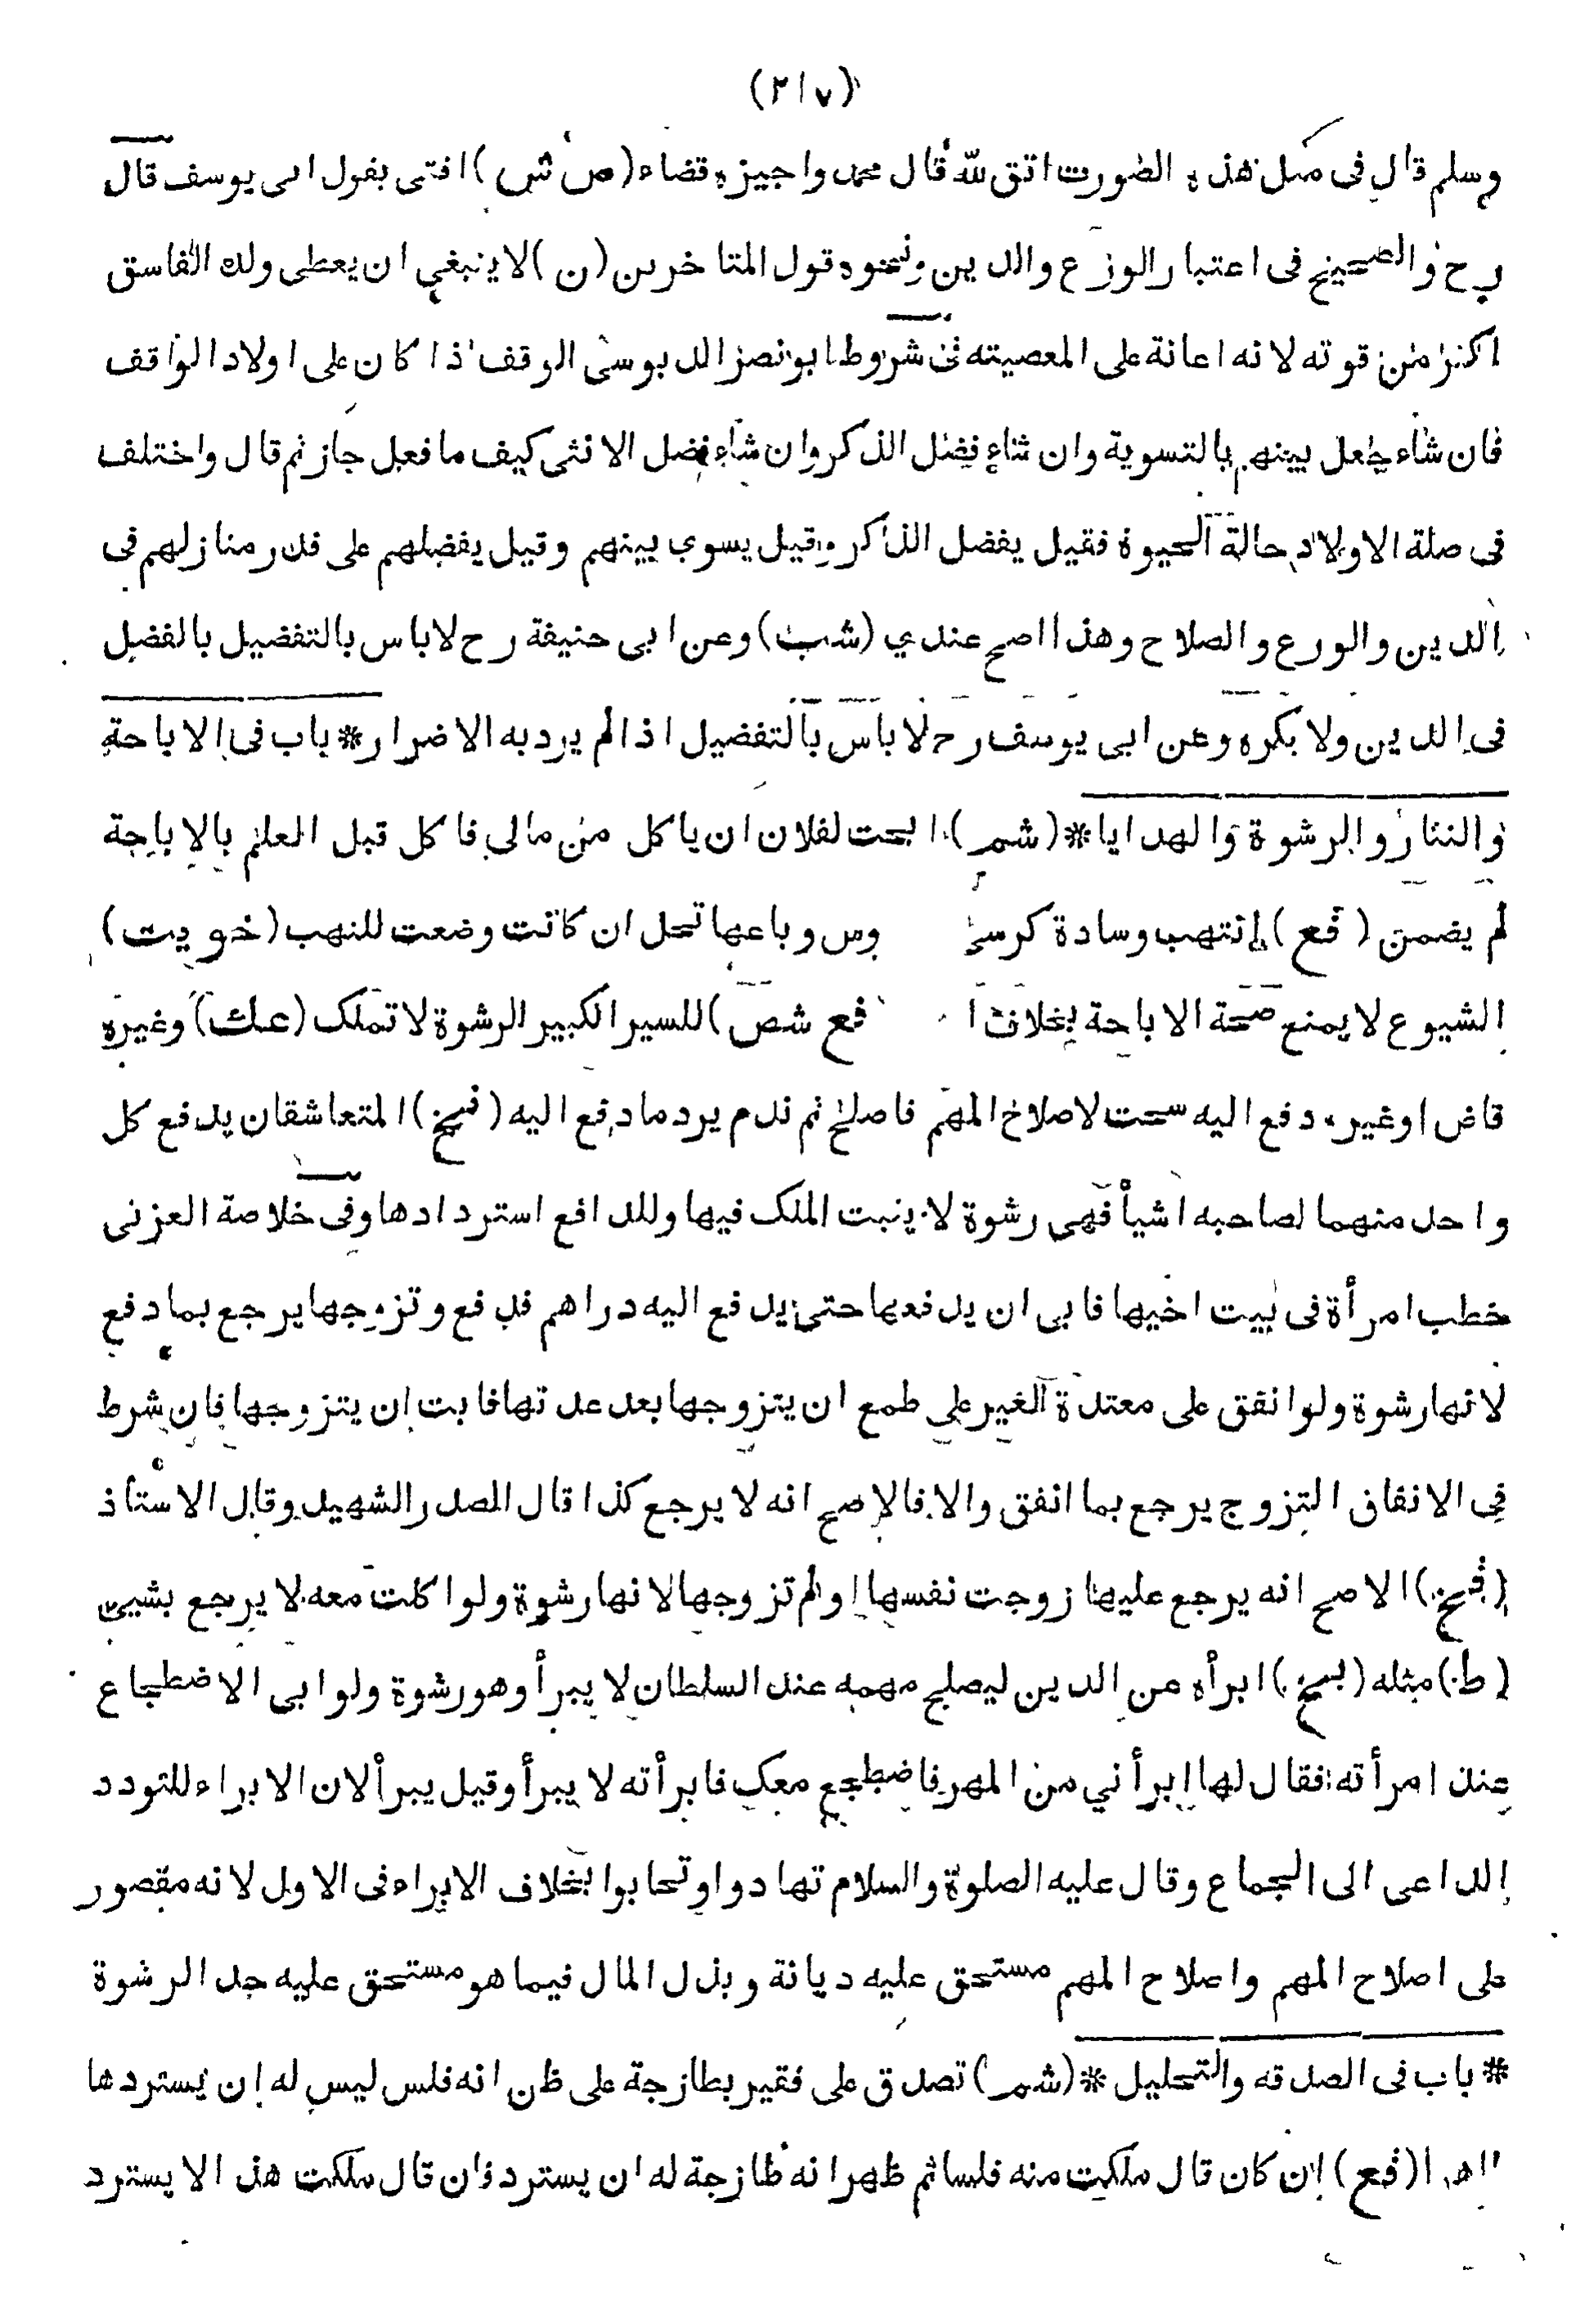 (٢١٧)
وسلم قال فى مثل هذه الصورت اتق لله قال محمد واجيزه قضاء (ص ش) افتى بقول ابى يوسف قال
رح والصحيح فى اعتبار الورع والدين ونحوه قول المتاخرين (ن) لا ينبغي ان يعطى ولده الفاسق
اكثر من قوته لانه اعانة على المعصيته فى شروط ابو نصر الدبوسى الوقف اذا كان على اولاد الواقف
فان شاء جعل بينهم بالتسوية وان شاء فضل الذكر وان شاء فضل الانثى كيف ما فعل جاز ثم قال واختلف
فى صلة الاولاد حالة الحيوة فقيل يفضل الذكر وقيل يسوى بينهم وقيل يفضلهم على قدر منازلهم فى
الدين والورع والصلاح وهذا اصح عندي (شب) وعن ابى حنيفة رح لا باس بالتفضيل بالفضل
فى الدين ولا يكره وعن ابى يوسف رح لا باس بالتفضيل اذا لم يرد به الاضرار * باب فى الاباحة
والنثار والرشوة والهدايا * (شم) ابحت لفلان ان ياكل من مالى فاكل قبل العلم بالاباحة
لم يضمن (قع) انتهب وسادة كرسى وس وباعها تحل ان كانت وضعت للنهب (خويت)
الشيوع لا يمنع صحة الاباحة بخلاف ا قع شص) للسير الكبير الرشوة لا تملك (عك) وغيره
قاض او غيره دفع اليه سحت لاصلاح المهم فاصلح ثم ندم يرد ما دفع اليه (فيخ) المتعاشقان يدفع كل
واحد منهما لصاحبه اشيأ فهى رشوة لا يثبت الملك فيها وللدافع استردادها وفى خلاصة العزنى
خطب امرأة فى بيت اخيها فابى ان يدفعها حتى يدفع اليه دراهم فدفع وتزوجها يرجع بما دفع
لانها رشوة ولو انفق على معتدة الغير على طمع ان يتزوجها بعد عدتها فابت ان يتزوجها فان شرط
فى الانفاق التزوج يرجع بما انفق والا فالاصح انه لا يرجع كذا قال الصدر الشهيد وقال الاستاذ
(فيخ) الاصح انه يرجع عليها زوجت نفسها او لم تزوجها لانها رشوة ولو اكلت معه لا يرجع بشيئ
(ط) مثله (بخ) ابرأه عن الدين ليصلح مهمه عند السلطان لا يبرأ وهو رشوة ولو ابى الاضطجاع
عند امرأته فقال لها ابرأني من المهر فاضطجع معك فابرأته لا يبرأ وقيل يبرأ لان الابراء للتودد
الداعى الى الجماع وقال عليه الصلوة والسلام تهادوا وتحابوا بخلاف الابراء فى الاول لانه مقصور
على اصلاح المهم واصلاح المهم مستحق عليه ديانة وبذل المال فيما هو مستحق عليه حد الرشوة
* باب فى الصدقه والتحليل * (شم) تصدق على فقير بطازجة على ظن انه فلس ليس له ان يستردها
(قع) ان كان قال ملكت منه فلسا ثم ظهر انه طازجة له ان يسترد وان قال ملكت هذا لا يسترد